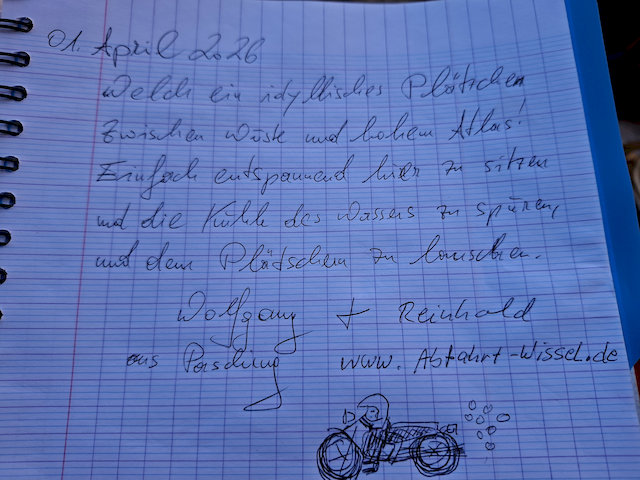 01. April 2026
Welch ein idyllisches Plätzchen
zwischen Wüste und hohem Atlas!
Einfach entspannend hier zu sitzen
und die Kühle des Wassers zu spüren,
und dem Plätschern zu lauschen.
Wolfgang + Reinhold
aus Pasching www.Abfahrt-Wissel.de